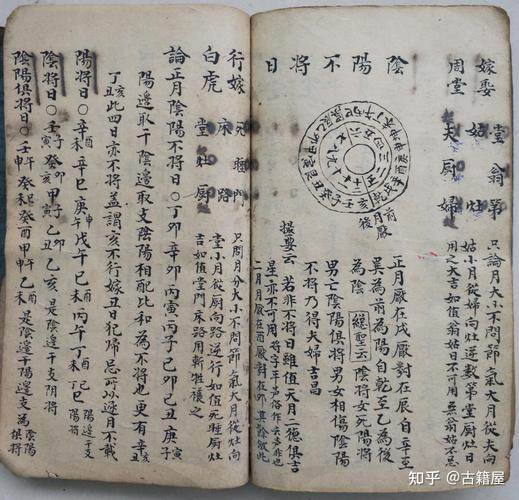 嫁娶
周堂
堂翁第
姑灶
夫厨婦
只論月大小不問節氣大月從夫向
姑小月從婦向灶逆數第堂厨灶日
用之大吉如值翁姑日不可用無翁姑不忌
陰陽不將日
正月厭在戌厭對在辰自辛至
巽為前為陽自乾至乙為後
為陰 總聖云 陰將女死陽將
男亡陰陽俱將男女相傷陰陽
不將乃得夫婦吉昌
撮要云 若非不將日雖值天月二德俱吉
星亦不可用
二月月厭在酉厭對在卯其餘放此
前
月厭
後
行嫁
白虎
死睡門
堂床路
灶厨
只問月分大小不問節氣大月從灶向
堂小月從厨向路逆行如值死睡厨灶
吉如值堂門床路用新牲禳之
論正月陰陽不將日〇丁卯辛卯丙寅丙子己卯己丑庚子寅
陽邊取干陰邊取支陰陽相配比和為不將也更有辛丑亥
丁丑亥此四日亦不將盖謂亥不行嫁丑日犯歸忌所以逐月不載
陽將日〇辛未酉辛巳庚申戊午丙午丁未酉 陽邊干支陽將
陰將日〇壬子寅癸亥卯甲寅子乙丑卯乙亥 是陰邊干支陰將
陰陽俱將日〇壬申午癸未巳癸酉甲申午乙未酉 是陰邊干陽邊支為陰陽俱將
知乎 @古籍屋